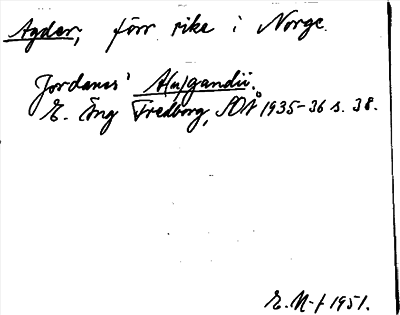 Agder, förr rike i Norge.
Jordanes' A(u)gandii.
E. Äng Fredborg, SOÅ 1935-36 s. 38.
E. N-f 1951.